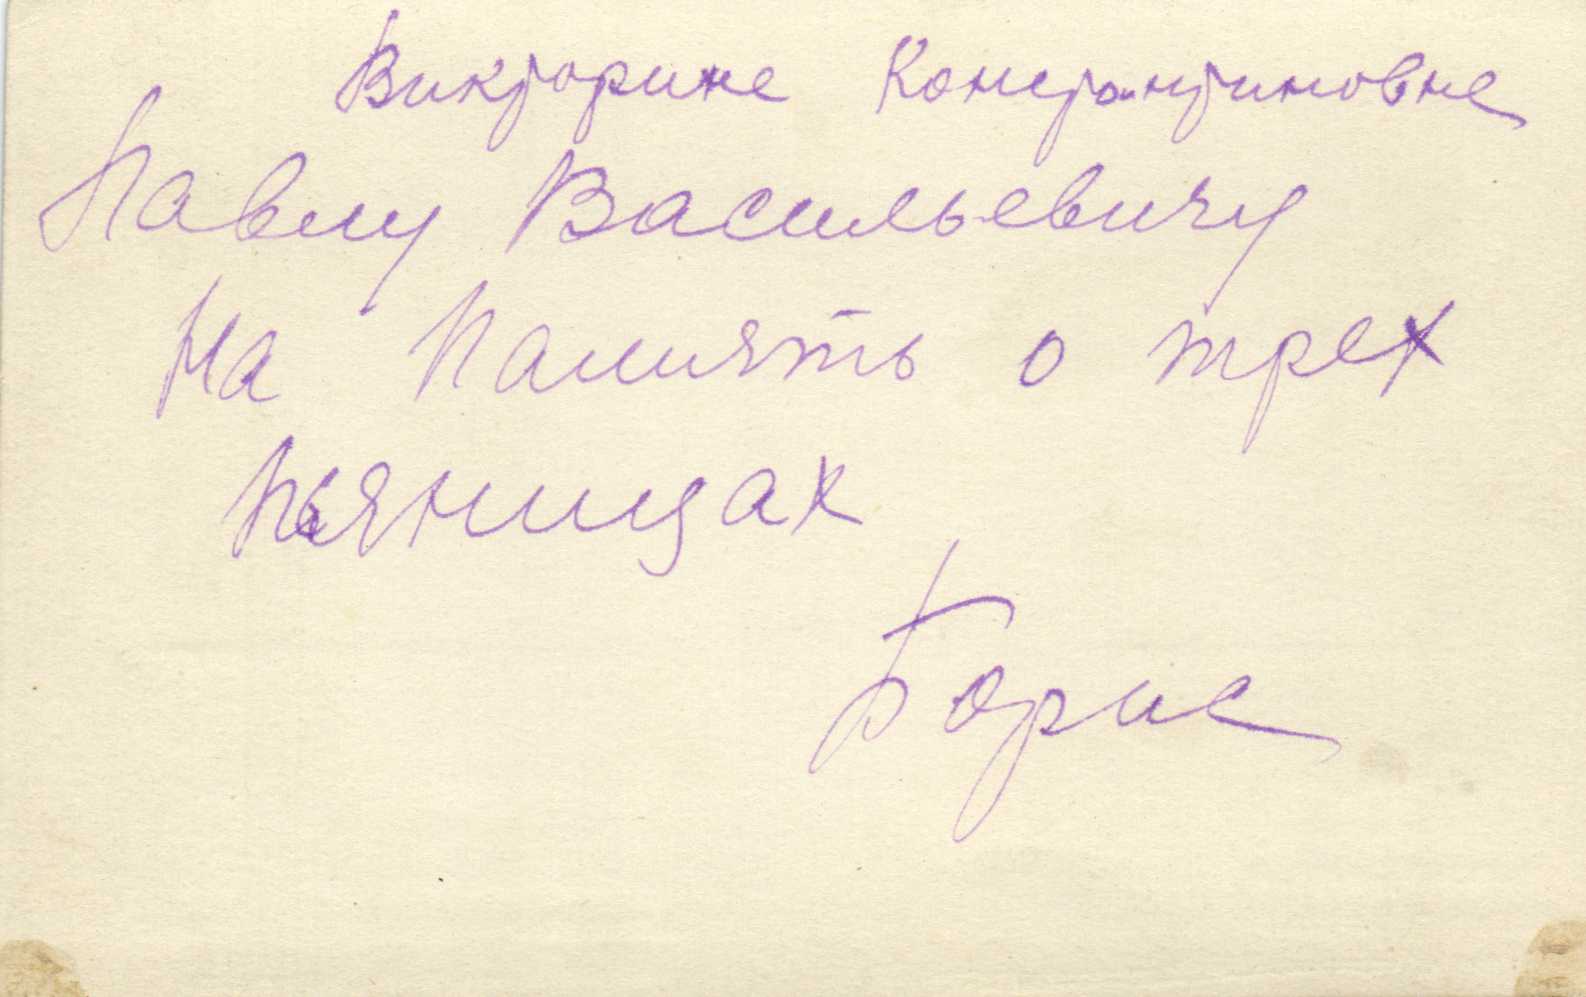 Викторине Константиновне
Павлу Васильевичу
На Память о трех
пьяницах
Борис